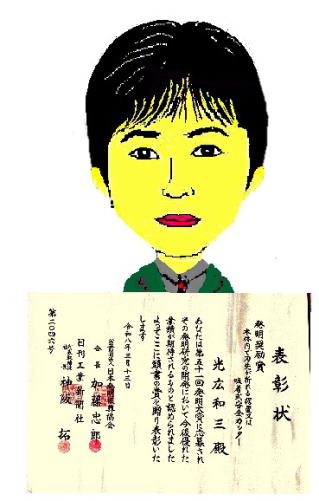 表彰状
発明奨励賞
本体内で刃先が折れる構造又は
吸着式安全カッター
光広和三殿
あなたは第五十一回発明大賞に応募され
その発明研究の開発において今後優れた
業績が期待されるものと認められました
よってここに頭書の賞を贈り表彰いた
します
令和八年三月十三日
公益財団法人日本発明振興協会
会長 加藤忠郎
日刊工業新聞社
神阪 拓
第二〇四六号